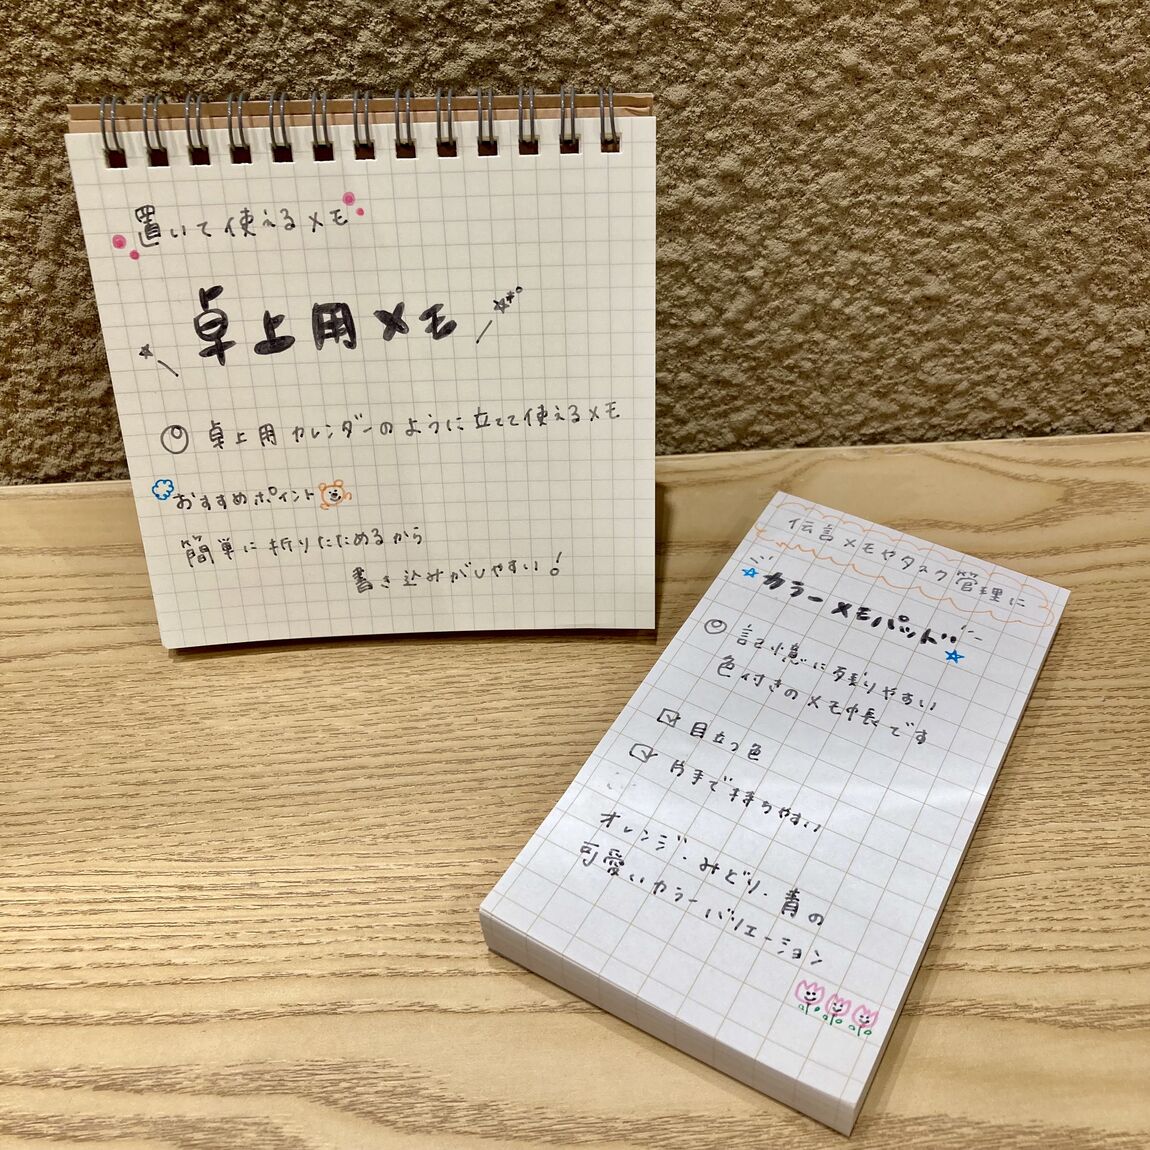 置いて使えるメモ
卓上用メモ
卓上用カレンダーのように立てて使えるメモ
おすすめポイント
簡単に折りたためるから
書き込みがしやすい!
伝言メモやタスク管理に
カラーメモパッド
記憶に残りやすい
色付きのメモ帳です
目立つ色
片手で持ちやすい
オレンジ・みどり・青の
可愛いカラーバリエーション